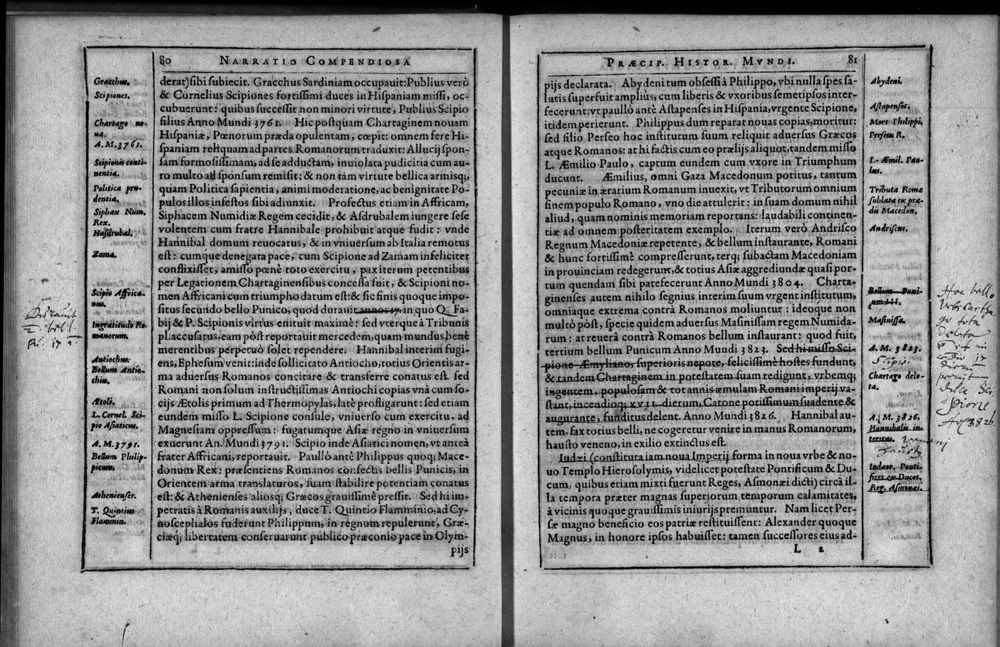 80 NARRATIO COMPENDIOSA
Gracchus.
Scipiones.
Chartago no-
ua.
A.M.3761.
Scipionis conti-
nentia.
Politica pru-
dentia.
Siphax Num.
Rex.
Hasdrubal.
Zama.
Scipio Affrica-
nus.
Ingratitudo Ro-
manorum.
Antiochus.
Bellum Antio-
chium.
Ætoli.
L. Cornel. Sci-
pio Asiaticus.
A.M.3791.
Bellum Philip-
picum.
Athenienses.
T. Quintius
Flaminin.
derat) sibi subiecit. Gracchus Sardiniam occupauit: Publius verò
& Cornelius Scipiones fortissimi duces in Hispaniam missi, oc-
cubuerunt: quibus successit non minori virtute, Publius Scipio
filius Anno Mundi 3761. Hic postquam Chartaginem nouam
Hispaniæ, Pœnorum præda opulentam, cœpit: omnem fere Hi-
spaniam reliquam ad partes Romanorum traduxit: Allucij spon-
sam formosissimam, ad se adductam, inuiolata pudicitia cum au-
ro multo ad sponsum remisit: & non tam virtute bellica armisq;,
quam Politica sapientia, animi moderatione, ac benignitate Po-
pulos illos infestos sibi adiunxit. Profectus etiam in Affricam,
Siphacem Numidiæ Regem cecidit, & Asdrubalem iungere sese
volentem cum fratre Hannibale prohibuit atque fudit: vnde
Hannibal domum reuocatus, & in vniuersum ab Italia remotus
est: cumque denegata pace, cum Scipione ad Zamam infeliciter
conflixisset, amisso pœnè toto exercitu, pax iterum petentibus
per Legationem Chartaginensibus concessa fuit, & Scipioni no-
men Affricani cum triumpho datum est: & sic finis quoque impo-
situs secundo bello Punico, quod durauit annos 17. in quo Q. Fa-
bij & P. Scipionis virtus enituit maximè: sed vterque à Tribunis
pl. accusatus, eam post reportauit mercedem, quam mundus benè
merentibus perpetuò solet rependere. Hannibal interim fugi-
ens, Ephesum venit: inde sollicitato Antiocho, totius Orientis ar-
ma aduersus Romanos concitare & transferre conatus est. sed
Romani non solum instructissimas Antiochi copias vnà cum so-
cijs Ætolis primum ad Thermopylas, latè profligarunt: sed etiam
eundem misso L. Scipione consule, vniuerso cum exercitu, ad
Magnesiam oppressum: fugatumque Asiæ regno in vniuersum
exuerunt An. Mundi 3791. Scipio inde Asiatici nomen, vt anteà
frater Affricani, reportauit. Paullò antè Philippus quoq; Mace-
donum Rex: præsentiens Romanos confectis bellis Punicis, in
Orientem arma translaturos, suam stabilire potentiam conatus
est: & Athenienses aliosq; Græcos grauissimè pressit. Sed hi im-
petratis à Romanis auxilijs, duce T. Quintio Flamminio, ad Cy-
noscephalos fuderunt Philippum, in regnum repulerunt, Græ-
ciæq; libertatem conseruarunt publico præconio pace in Olym-
pijs
PRÆCIP. HISTOR. MVNDI. 81
pijs declarata. Abydeni tum obsessi à Philippo, vbi nulla spes sa-
lutis superfuit amplius, cum liberis & vxoribus semetipsos inter-
fecerunt: vt paullò antè Astapenses in Hispania, vrgente Scipione,
itidem perierunt. Philippus dum reparat nouas copias, moritur:
sed filio Perseo hoc institutum suum reliquit aduersus Græcos
atque Romanos: at hi factis cum eo prælijs aliquot, tandem misso
L. Æmilio Paulo, captum eundem cum vxore in Triumphum
ducunt. Æmilius, omni Gaza Macedonum potitus, tantum
pecuniæ in ærarium Romanum inuexit, vt Tributorum omnium
finem populo Romano, vno die attulerit: in suam domum nihil
aliud, quam nominis memoriam reportans: laudabili continen-
tiæ ad omnem posteritatem exemplo. Iterum verò Andrisco
Regnum Macedoniæ repetente, & bellum instaurante, Romani
& hunc fortissimè compresserunt, terq; subactam Macedoniam
in prouinciam redegerunt, & totius Asiæ aggrediundæ quasi por-
tum quendam sibi patefecerunt Anno Mundi 3804. Charta-
ginenses autem nihilo segnius interim suum vrgent institutum,
omniaque extrema contrà Romanos moliuntur: ideoque non
multò pòst, specie quidem aduersus Masinissam regem Numida-
rum: at reuerà contrà Romanos bellum instaurant: quod fuit,
tertium bellum Punicum Anno Mundi 3823. Sed hi misso Sci-
pione Æmyliano, superioris nepote, felicissimè hostes fundunt,
& tandem Chartaginem in potestatem suam redigunt, vrbemq;
ingentem, populosam & tot annis æmulam Romani imperij va-
stant, incendioq; XVII. dierum, Catone potissimum suadente &
augurante, funditus delent. Anno Mundi 3826. Hannibal au-
tem, fax totius belli, ne cogeretur venire in manus Romanorum,
hausto veneno, in exilio extinctus est.
Iudæi (constituta iam noua Imperij forma in noua vrbe & no-
uo Templo Hierosolymis, videlicet potestate Pontificum & Du-
cum, quibus etiam mixti fuerunt Reges, Asmonæi dicti) circà il-
la tempora præter magnas superiorum temporum calamitates,
à vicinis quoque grauissimis iniurijs premuntur. Nam licet Per-
sæ magno beneficio eos patriæ restituissent: Alexander quoque
Magnus, in honore ipsos habuisset: tamen successores eius ad-
L 2
Abydeni.
Astapenses.
Mors Philippi.
Perseus R.
L. Æmil. Pau-
lus.
Tributa Romæ
sublata ex præ-
dâ Macedon.
Andriscus.
Bellum Puni-
cum III.
Masinissa.
A. M. 3823.
Scipio.
Chartago dele-
ta.
A. M. 3826.
Hannibalis in-
teritus.
Iudæor. Ponti-
fices ex Duces.
Reg. Asmonæi.
Hoc bello